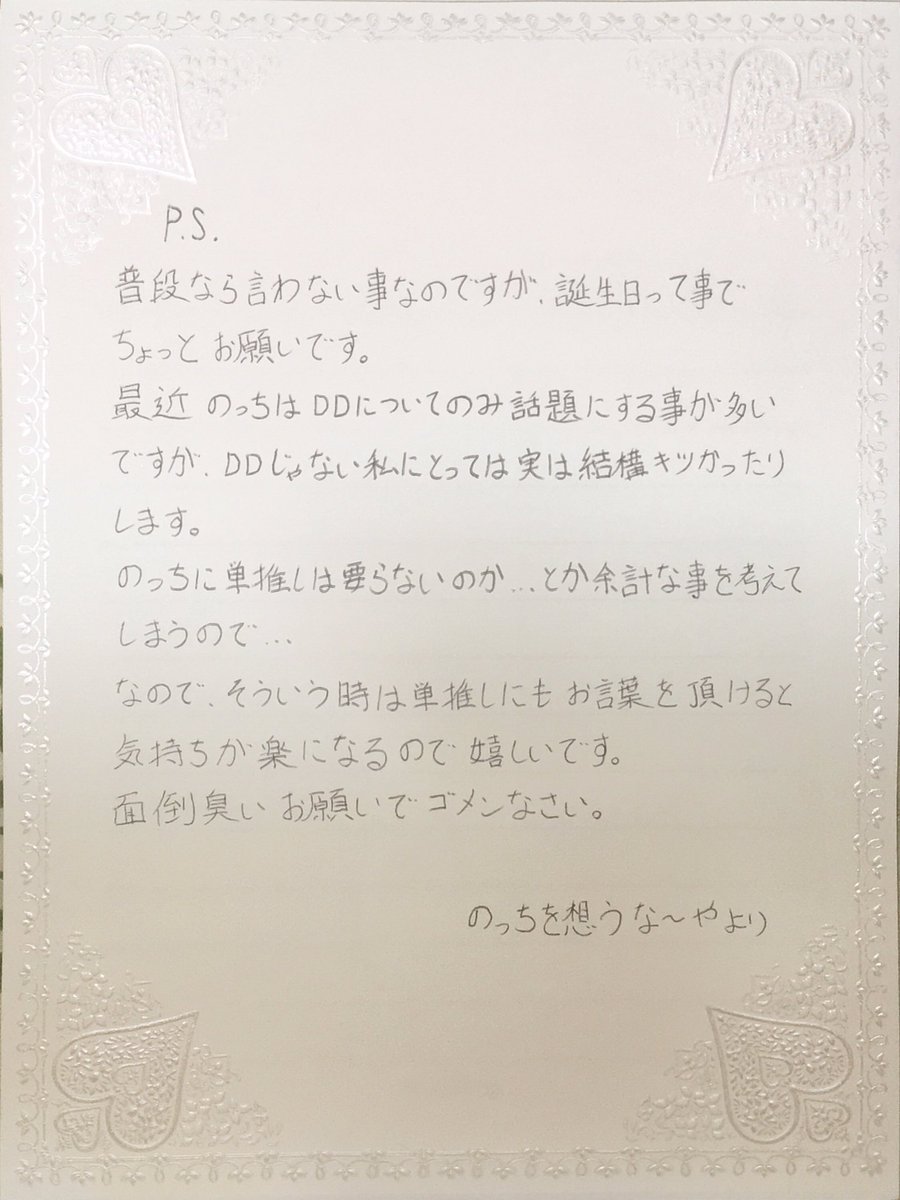 P.S.
普段なら言わない事なのですが、誕生日って事で
ちょっとお願いです。
最近 のっちはDDについてのみ話題にする事が多い
ですが、DDじゃない私にとっては実は結構キツかったり
します。
のっちに単推しは要らないのか…とか余計な事を考えて
しまうので…
なので、そういう時は単推しにもお言葉を頂けると
気持ちが楽になるので嬉しいです。
面倒臭いお願いでゴメンなさい。
のっちを想うな～やより